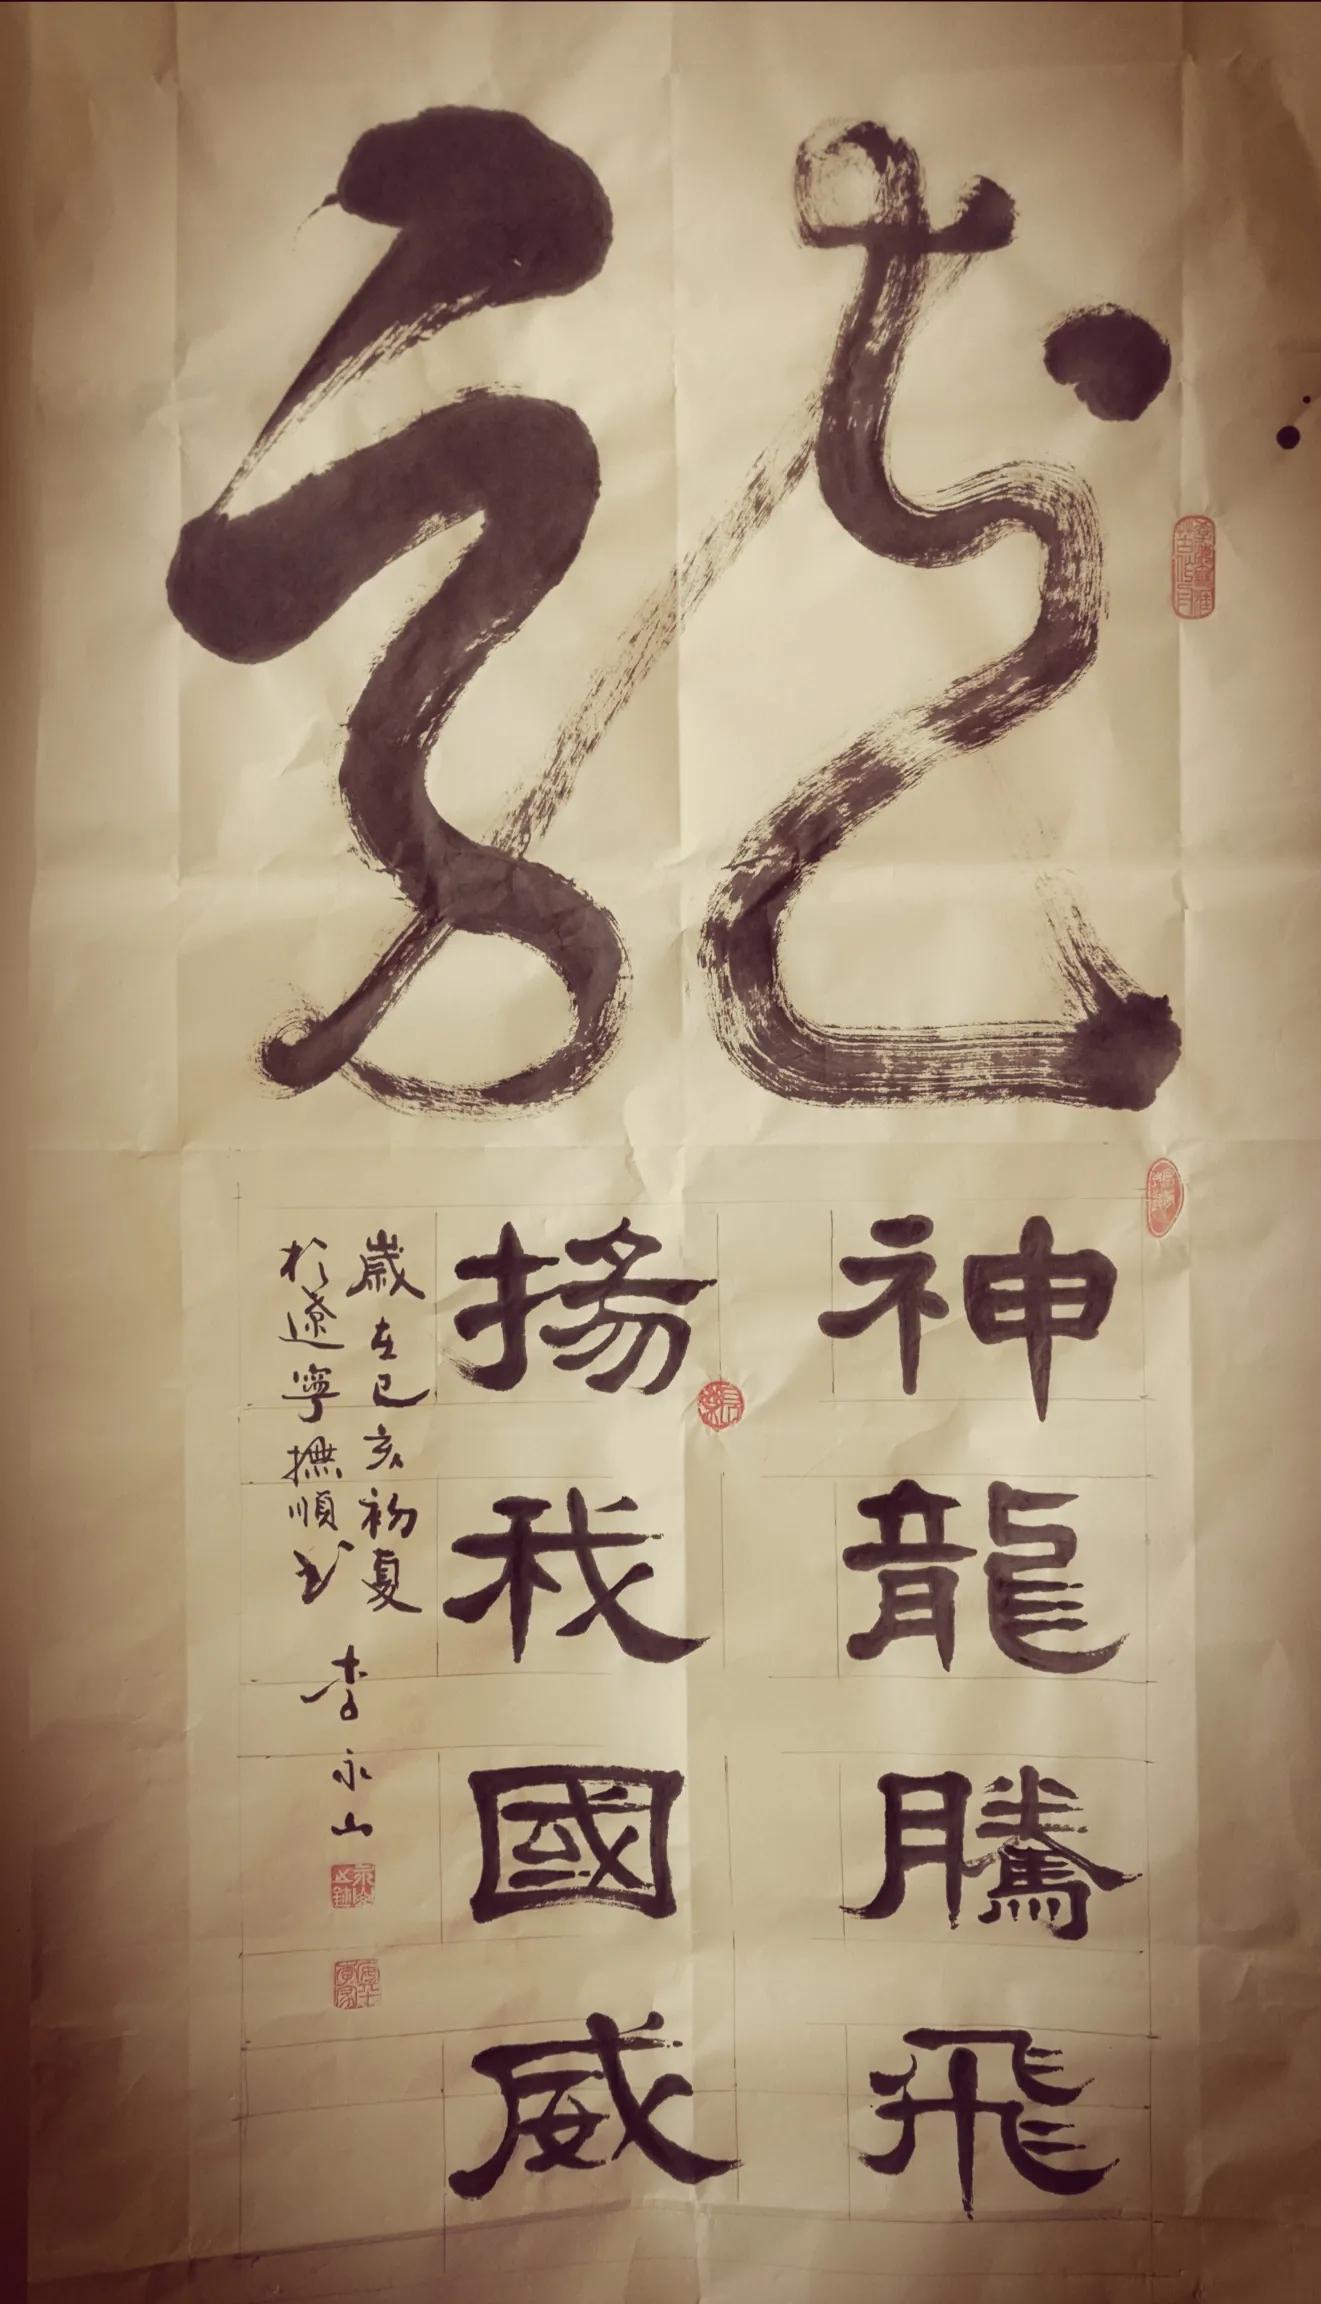 龍
神龍騰飛
揚我國威
歲在己亥初夏
於遼寧撫順書
李永山